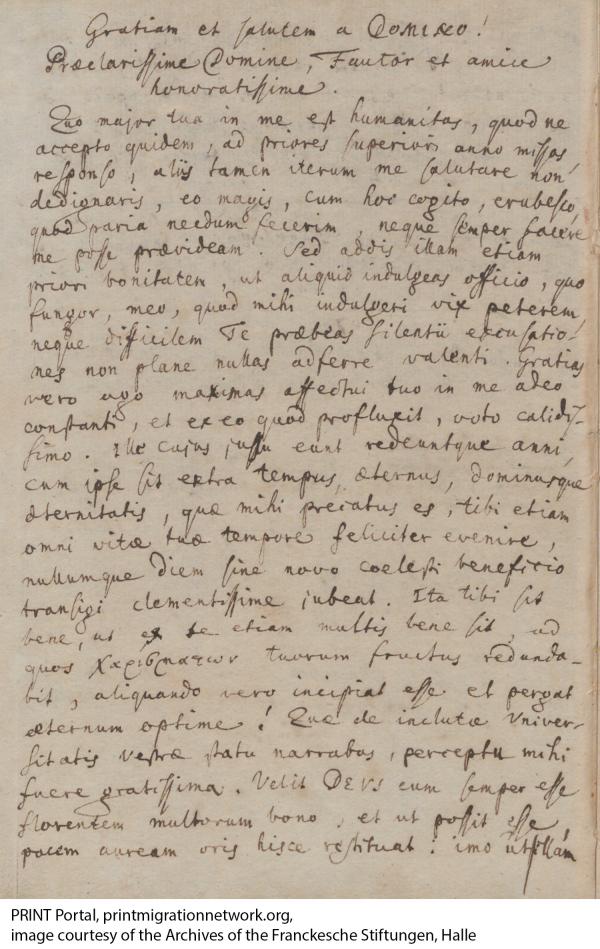 Gratiam et salutem a DOMINO!
Præclarissime Domine, Fautor et amice
honoratissime.
Quo major tua in me est humanitas, quod ne
accepto quidem, ad priores superiori anno missas
responso, aliis tamen iterum me salutare non
dedignaris, eo magis, cum hoc cogito, erubesco
quod paria necdum fecerim, neque semper facere
me posse prævideam. Sed addis illam etiam
priori bonitatem, ut aliquid indulgeas officio, quo
fungor, meo, quod mihi indulgeri vix peterem
neque difficilem Te præbeas silentii excusatio-
nes non plane nullas adferre valenti. Gratias
vero ago maximas affectui tuo in me adeo
constanti, et ex eo quod profluxit, voto calidis-
simo. Ille cujus jussu eunt redeuntque anni,
cum ipse sit extra tempus, æternus, dominusque
æternitatis, quæ mihi precatus es, tibi etiam
omni vitæ tuæ tempore feliciter evenire,
nullumque diem sine novo coelesti beneficio
transigi clementissime jubeat. Ita tibi sit
bene, ut ex te etiam multis bene sit, ad
quos χαρισματων tuorum fructus redunda-
bit, aliquando vero incipiat esse et pergat
æternum optime! Quæ de inclutæ Univer-
sitatis vestræ statu narrabas, perceptu mihi
fuere gratissima. Velit DEUS eum semper esse
florentem multorum bono, et ut possit esse
pacem auream oris hisce restituat: imo
PRINT Portal, printmigrationnetwork.org,
image courtesy of the Archives of the Franckesche Stiftungen, Halle